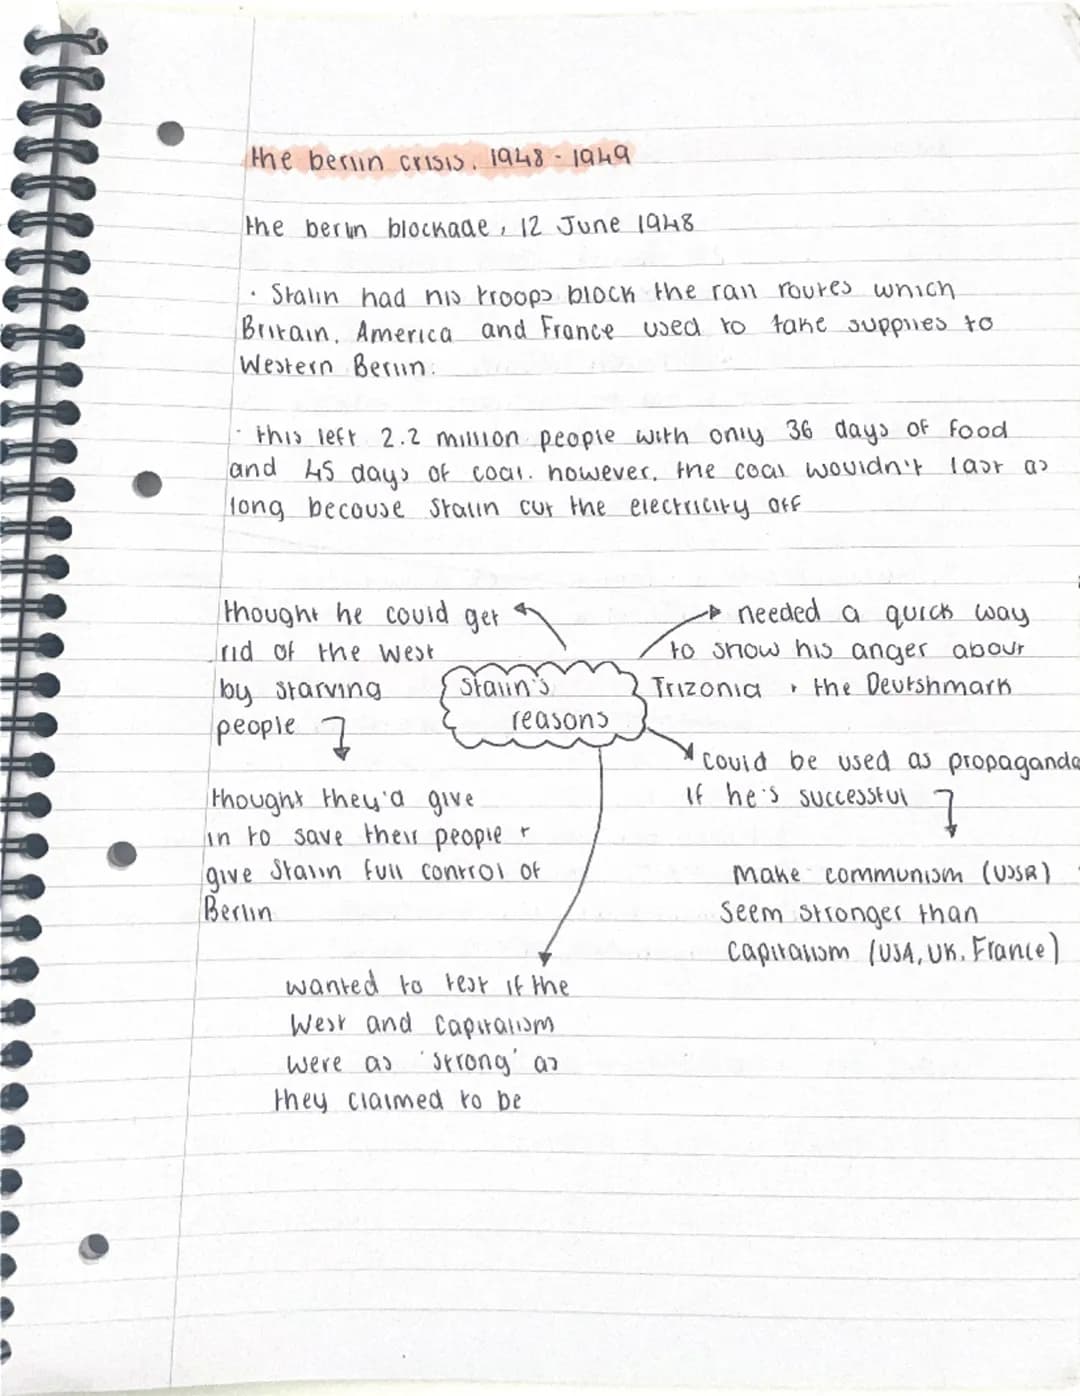 the berlin crisis, 1948 - 1949
the berlin blockade, 12 June 1948
· Stalin had his troops block the rail routes which
Britain, America and France used to take supplies to
Western Berlin.
· this left 2.2 million people with only 36 days of food
and 45 days of coal. however, the coal wouldn't last as
long because Stalin cut the electricity off
Stalin's
reasons
thought he could get
rid of the West
by starving
people
thought they'd give
in to save their people +
give Stalin full control of
Berlin
needed a quick way
to show his anger about
Trizonia + the Deutshmark
could be used as propaganda
if he's successful
Make communism (USSR)
seem stronger than
capitalism (USA, UK, France)
wanted to test if the
West and Capitalism
were as 'strong' as
they claimed to be